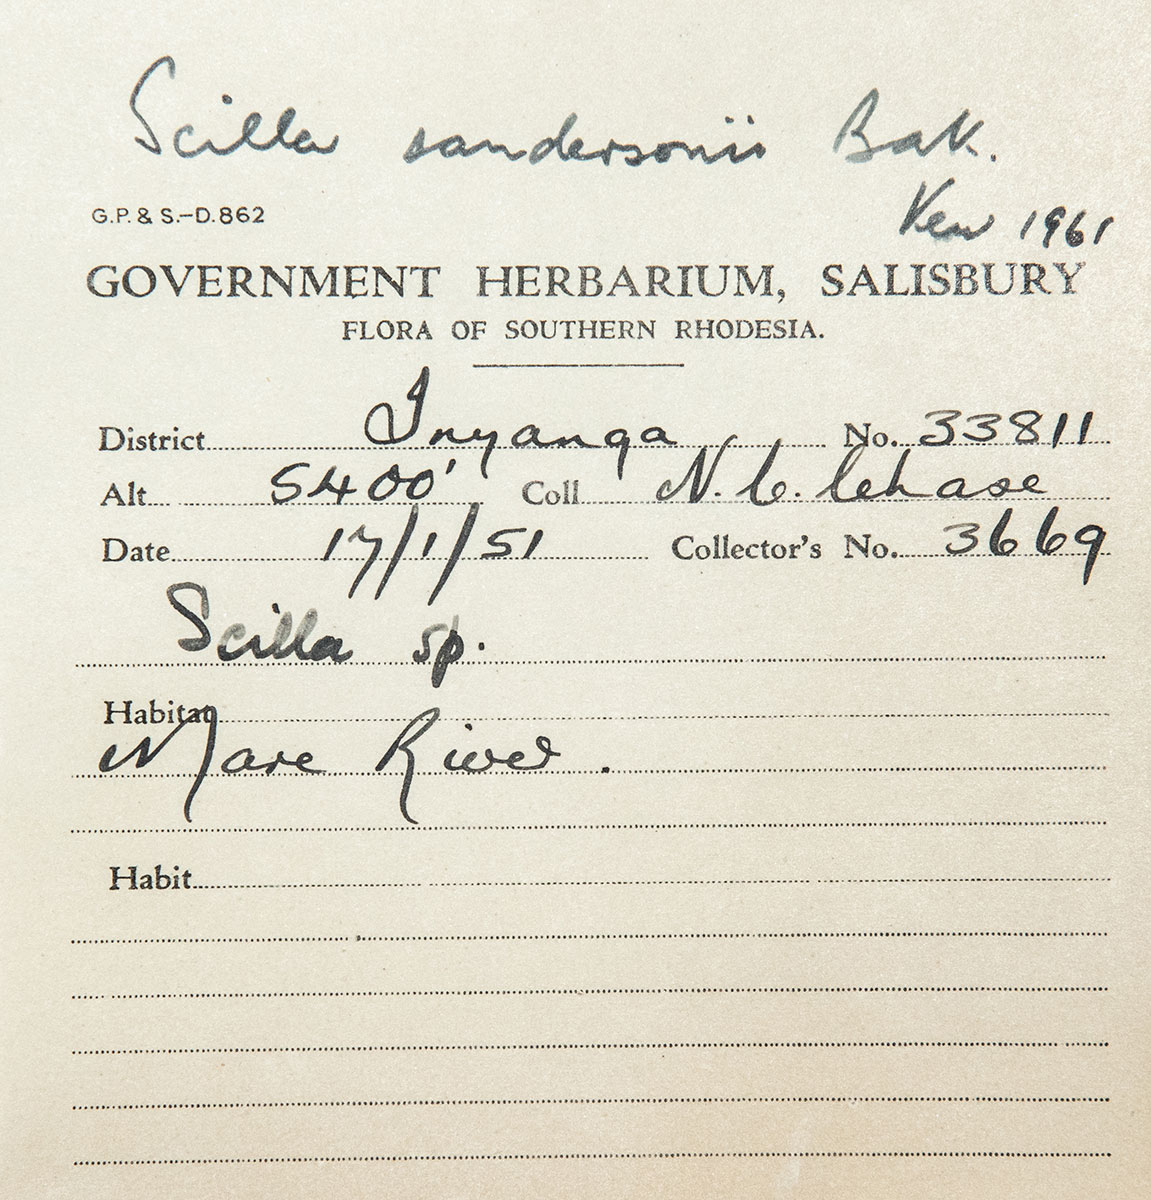 Scilla sandersonii Bak.
Kew 1961
G.P. & S.—D.862
GOVERNMENT HERBARIUM, SALISBURY
FLORA OF SOUTHERN RHODESIA.
District Inyanga No. 33811
Alt 5400' Coll N. C. Chase
Date 17/1/51 Collector's No. 3669
Scilla sp.
Habitat
Mare River.
Habit